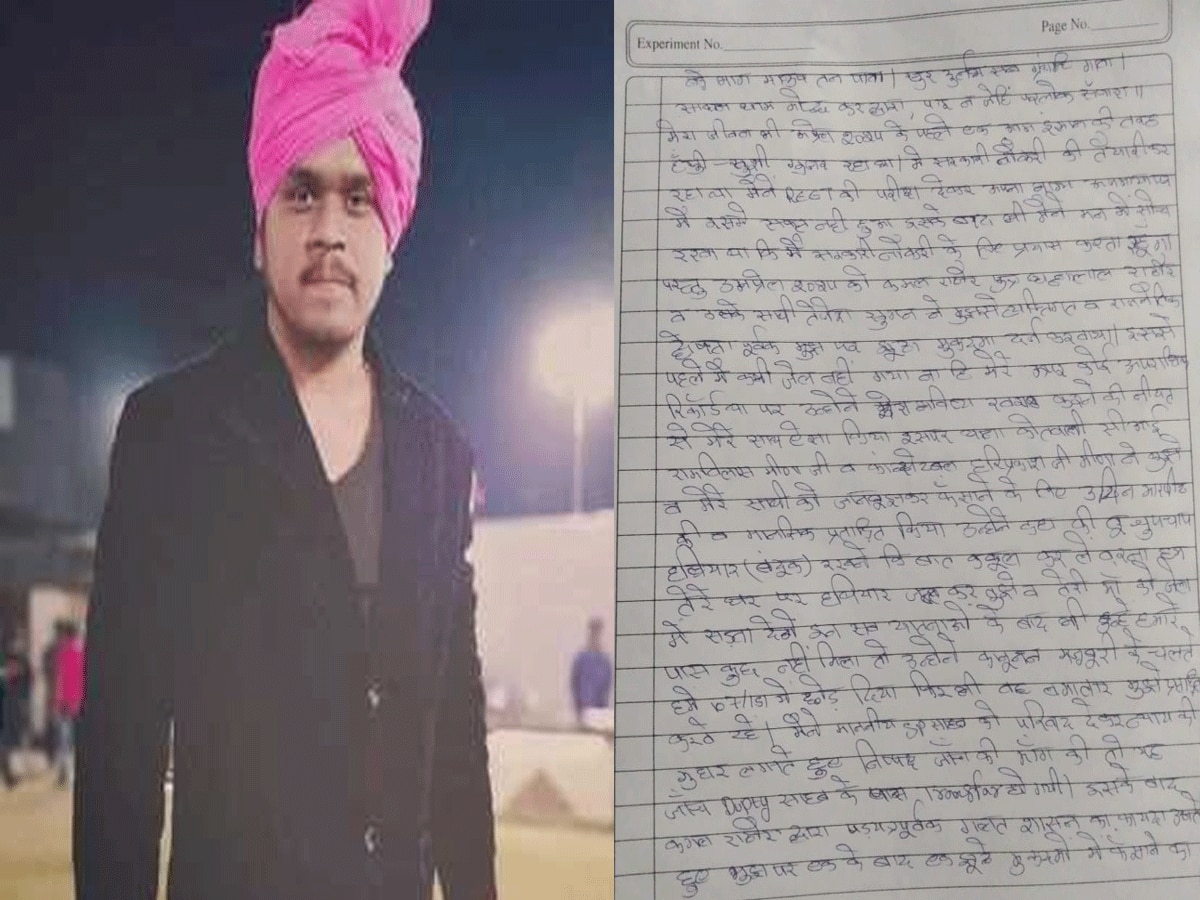 Experiment No.
Page No.
बड़े भाग मानुष तन पावा। सुर दुर्लभ सब ग्रंथहि गावा।
साधन धाम मोच्छ कर द्वारा, पाइ न जेहिं परलोक सँवारा॥
मेरा जीवन भी अप्रैल के पहले एक आम इंसान की तरह
हँसी-खुशी गुजर रहा था। मैं सरकारी नौकरी की तैयारी कर
रहा था मैंने REET की परीक्षा देकर अपना
मैं उसमें सफल नहीं हुआ इसके बाद भी मैंने मन में सोच
रखा था कि मैं सरकारी नौकरी के लिए प्रयास करता रहूँगा
परन्तु अप्रेल को कमल राठौर पुत्र राठौर
व उसके साथी ने मुझसे व्यक्तिगत व राजनैतिक
पूर्वक मुझ पर झूठा मुकदमा दर्ज करवाया। इससे
पहले मैं कभी जेल नहीं गया ना हि मेरे ऊपर कोई अपराधिक
रिकॉर्ड था पर उन्होंने मेरा भविष्य खराब करने की नीयत
से मेरे साथ ऐसा किया इसपर थाना कोतवाली सीआई
रामविलास मीणा जी व कांस्टेबल हरिप्रकाश जी मीणा ने मुझे
व मेरे साथी को जानबूझकर फँसाने के लिए 3 दिन मारपीट
की व मानसिक प्रताड़ित किया उन्होंने कहा की तू चुपचाप
हथियार (बंदूक) रखने कि बात कबूल कर ले वरना हम
तेरे घर पर हथियार जब्त कर तुझे व तेरी माँ को जेल
में सड़ा देंगे इन सब यातनाओं के बाद भी उन्हें हमारे
पास कुछ नहीं मिला तो उन्होंने कानूनन मजबूरी के चलते
हमें में छोड़ दिया फिर भी वह लगातार मुझे प्रताड़ित
करते रहे। मैंने माननीय SP साहब को परिवाद देकर न्याय की
गुहार लगाते हुए निष्पक्ष जाँच की माँग की तो यह
जाँच Dupty साहब के पास हो गयी। इसके बाद
कमल राठौर द्वारा षड्यंत्रपूर्वक गलत शासन का फायदा उठाते
हुए मुझ पर एक के बाद एक झूठे मुकदमों में फँसाने का